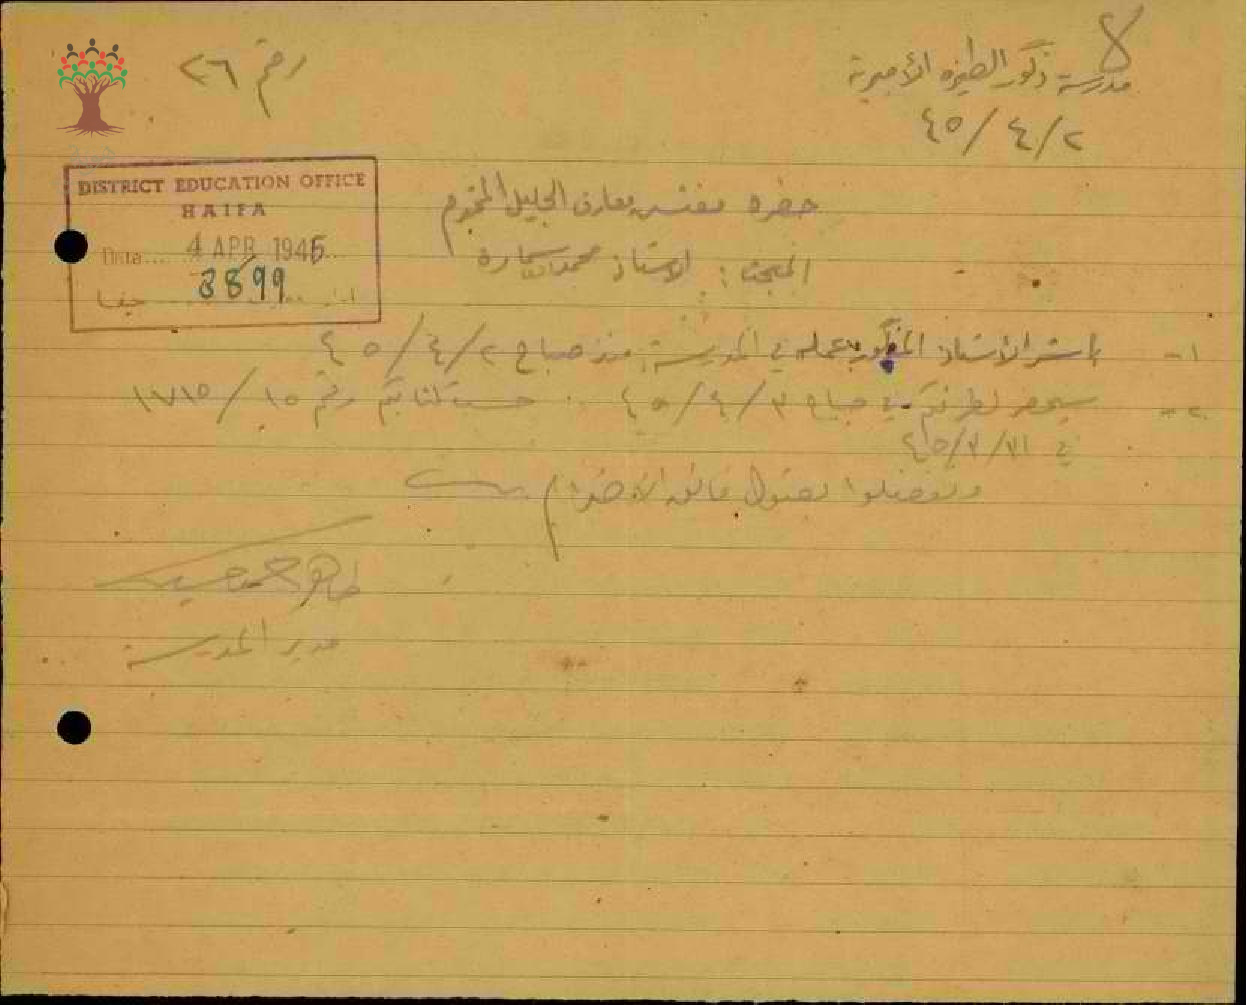 مدرسة ذكور الطيرة الأميرية
رقم ٢٦
٤٥/٤/٢
DISTRICT EDUCATION OFFICE
HAIFA
Date.... 4 APR 1945
3899
حيفا
حضرة مفتش معارف الجليل المحترم
المبحث: الاستاذ محمد سمارة
١- باشر الأستاذ المذكور بعمله في المدرسة منذ صباح ٤٥/٤/٢
٢- سيحضر لطرفكم في صباح ٤٥/٤/٣ حسب كتابكم رقم ١٧١٥/١٥
في ٤٥/٣/٣١
وتفضلوا بقبول فائق الاحترام
طاهر محمد
مدير المدرسة